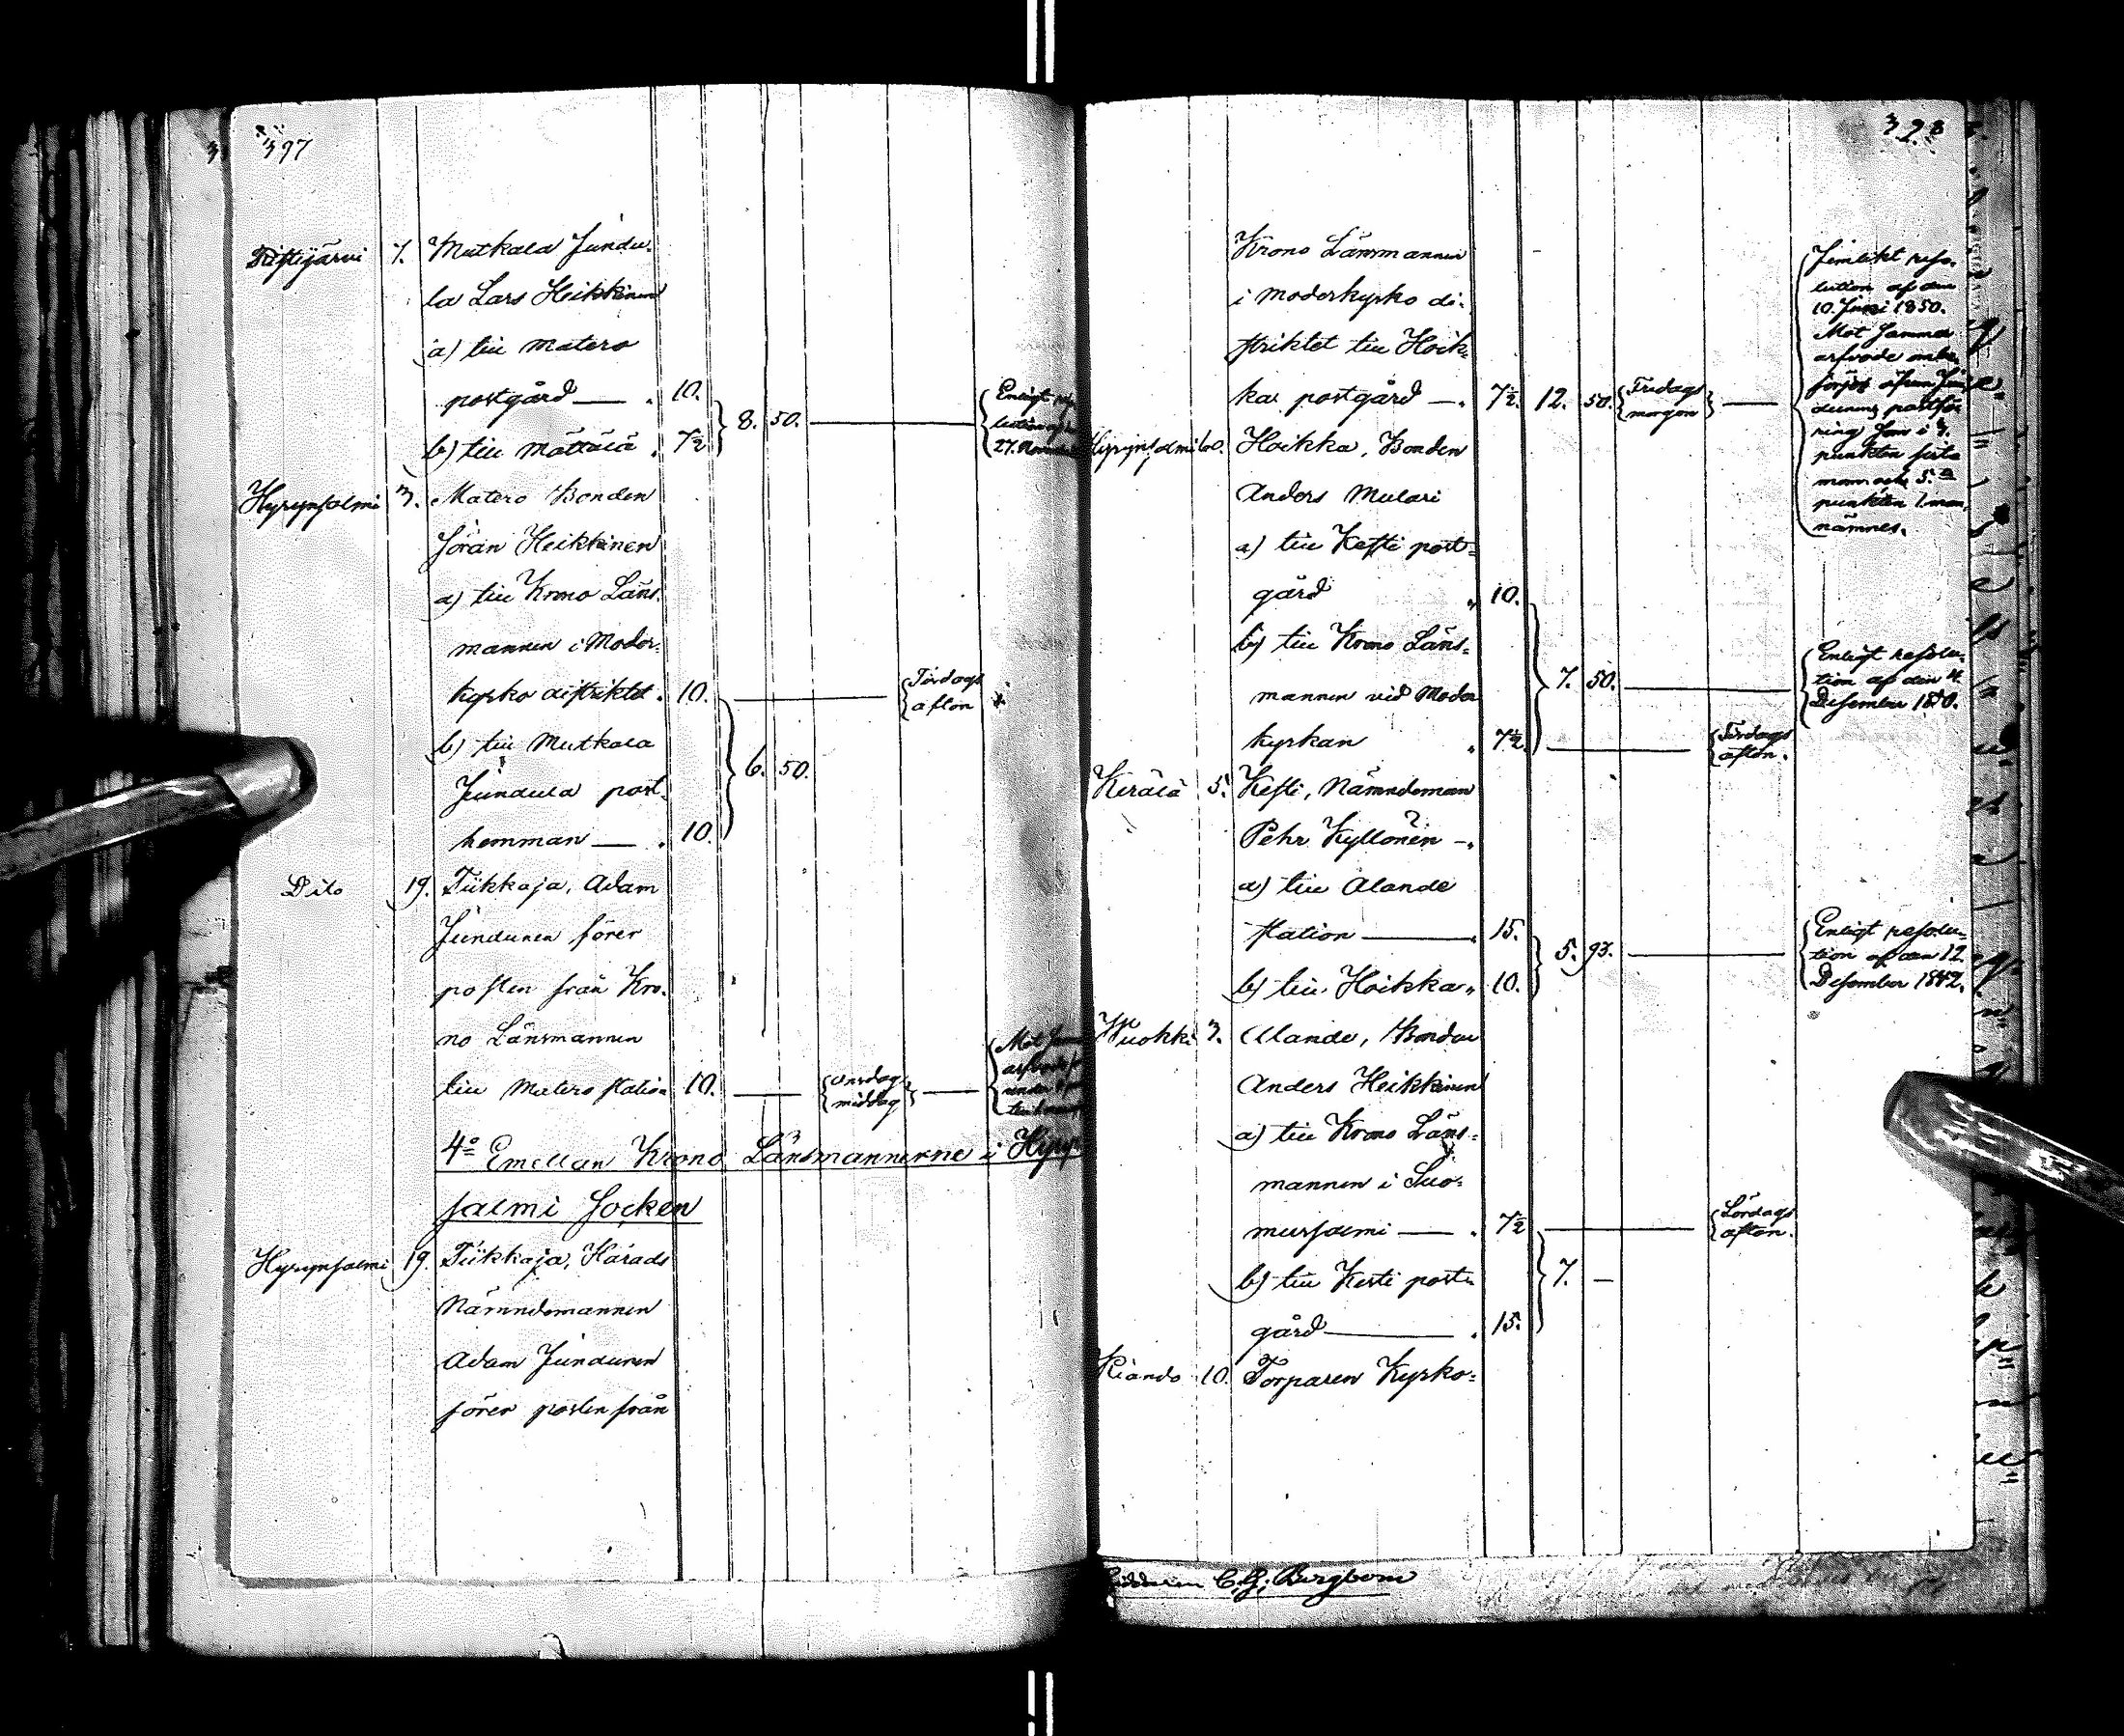 397
Ristijärvi 7. Mutkala Jundu-
la Lars Heikkinen
a) till Matero
postgård — „ 10.
b) till Mättälä „ 7½ 8. 50. Enligt
27.
Hyrynsalmi 3. Matero Bonden
Jöran Heikkinen
a) till Krono Läns-
mannen i Moder-
kyrko distriktet „ 10. Tisdags
afton
b) till Mutkala
Jundula post-
hemman — „ 10. 6. 50.
Dito 19. Tiikkaja, Adam
Jundunen förer
posten från Kro-
no Länsmannen
till Matero station 10. Onsdag
middag Mot
4o Emellan Krono Länsmännerne i Hyryn-
salmi Socken
Hyrynsalmi 19. Tiikkaja, Härads
Nämndemannen
Adam Jundunen
förer posten från
398
Krono Länsmannen
i Moderkyrko di-
striktet till Hoik-
ka postgård — „ 7½. 12. 50. Fredags
morgon
Jemlikt reso-
lution af den
10 Juni 1850.
Mot samma
arfvode
punkten
punkten
nämnes.
Hyrynsalmi Hoikka, Bonden
Anders Mulari
a) till Kesti post-
gård „ 10.
b) till Krono Läns-
mannen vid Moder
kyrkan „ 7½. 7. 50. Tisdags
afton.
Enligt resolu-
tion af den
December
Kerälä 5. Kesti, Nämndeman
Pehr Kyllönen —„
a) till Alande
station — 15.
b) till Hoikka „ 10. 5. 93. Enligt resolu-
tion af den 12
December 1842.
Wuokki 3. Alande, Bonden
Anders Heikkinen
a) till Krono Läns-
mannen i Suo-
mussalmi — „ 7½ Lördags
afton.
b) till Kesti post-
gård — „ 15. 7. —
Kiando 10. Torparen Kyrko-
C. G. Bergbom